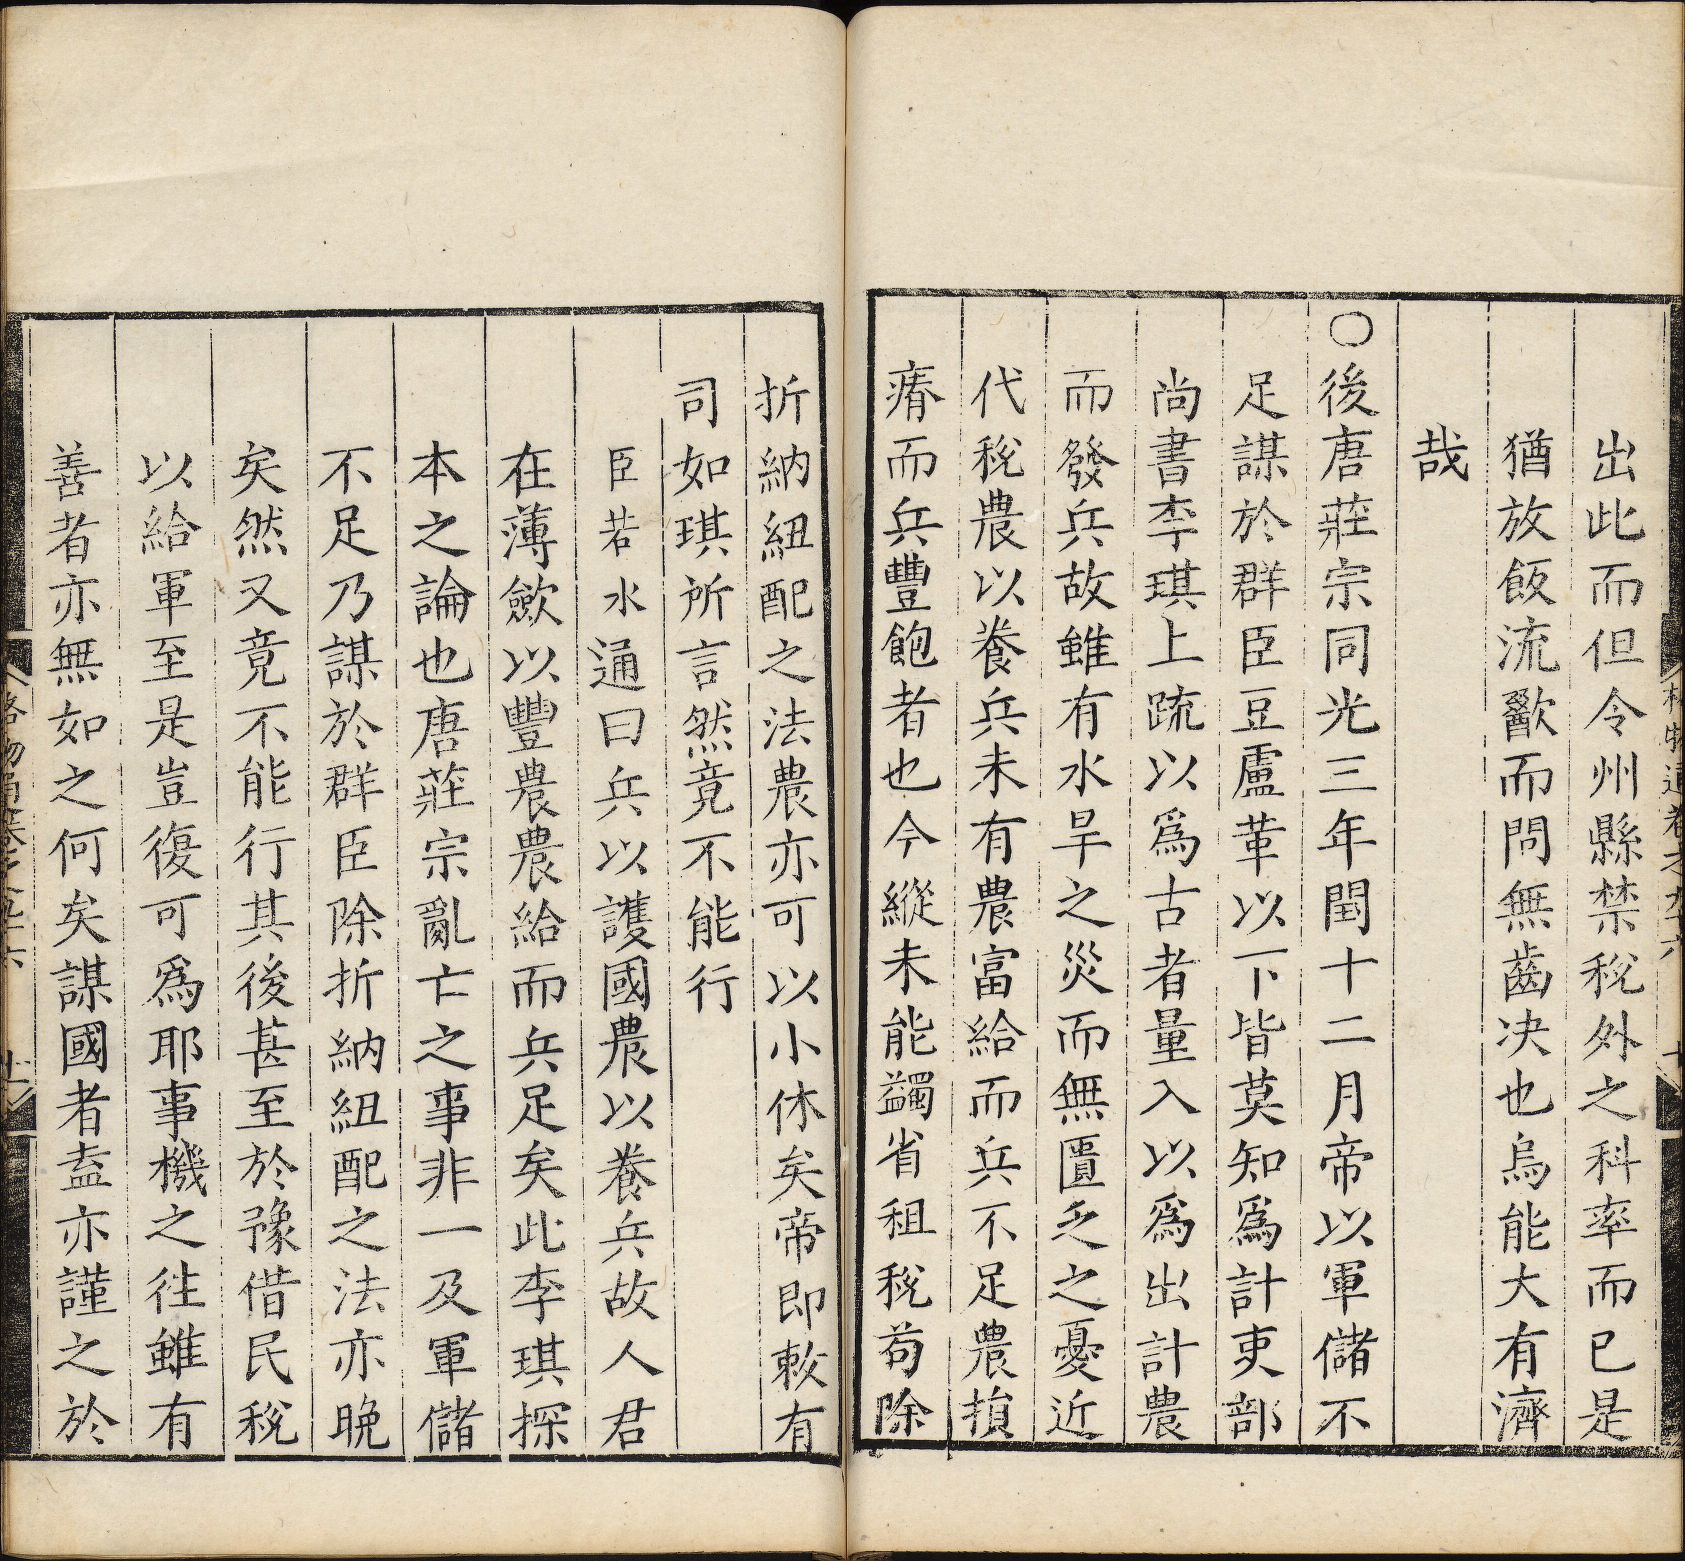 出此而但令州縣禁稅外之科率而已是
猶放飯流歠而問無齒决也烏能大有濟
哉
〇後唐莊宗同光三年閏十二月帝以軍儲不
足謀於群臣豆盧革以下皆莫知爲計吏部
尚書李琪上疏以爲古者量入以爲出計農
而發兵故雖有水旱之災而無匱乏之憂近
代稅農以養兵未有農富給而兵不足農損
瘠而兵豐飽者也今縱未能蠲省租稅苟除
折納紐配之法農亦可以小休矣帝即敕有
司如琪所言然竟不能行
臣若水通曰兵以護國農以養兵故人君
在薄斂以豐農農給而兵足矣此李琪探
本之論也唐莊宗亂亡之事非一及軍儲
不足乃謀於群臣除折納紐配之法亦晚
矣然又竟不能行其後甚至於豫借民稅
以給軍至是豈復可爲耶事機之往雖有
善者亦無如之何矣謀國者盍亦謹之於